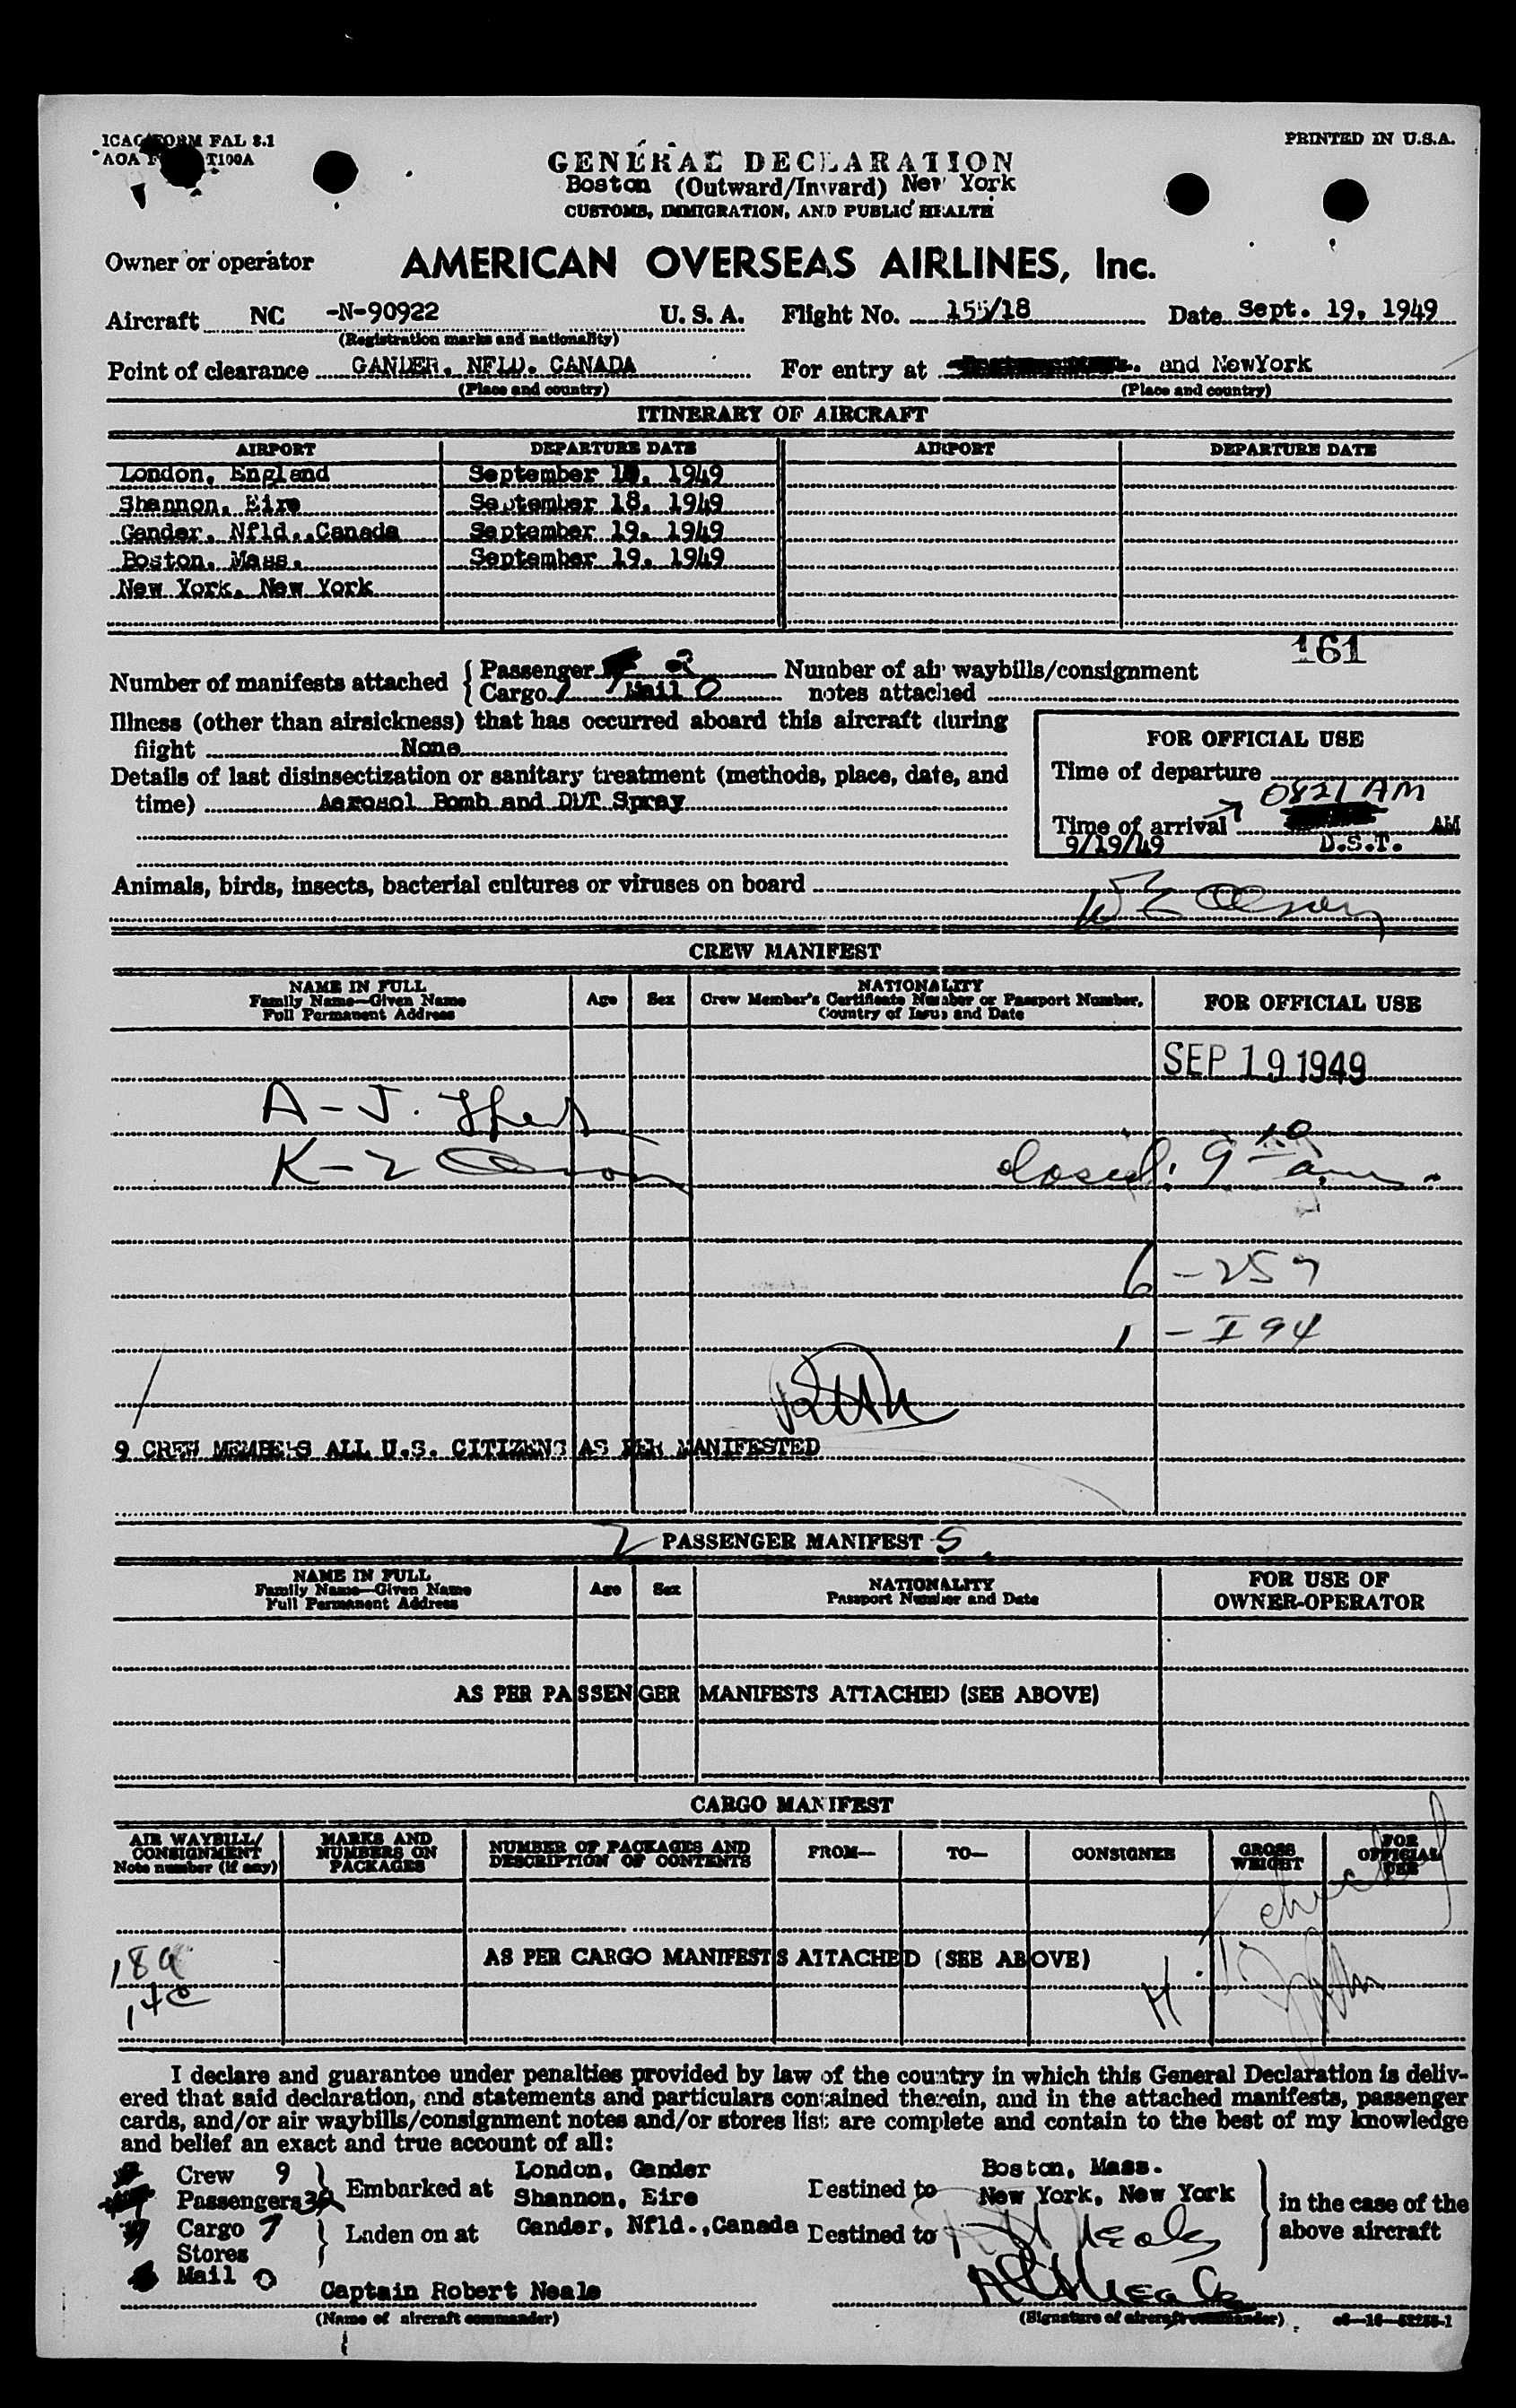 ICAO FORM FAL 8.1
PRINTED IN U.S.A.
AOA T100A
GENERAL DECLARATION
Boston (Outward/Inward) New York
CUSTOMS, IMMIGRATION, AND PUBLIC HEALTH
Owner or operator AMERICAN OVERSEAS AIRLINES, Inc.
Aircraft NC -N-90922 U. S. A. Flight No. 155/18 Date Sept. 19, 1949
(Registration marks and nationality)
Point of clearance GANDER, NFLD. CANADA For entry at and NewYork
(Place and country) (Place and country)
ITINERARY OF AIRCRAFT
AIRPORT DEPARTURE DATE AIRPORT DEPARTURE DATE
London, England September 1 , 1949
Shannon, Eire September 18, 1949
Gander, Nfld.,Canada September 19, 1949
Boston, Mass. September 19, 1949
New York, New York
161
Number of manifests attached { Passenger 2 Number of air waybills/consignment
Cargo 7 Mail 0 notes attached
Illness (other than airsickness) that has occurred aboard this aircraft during
flight None
Details of last disinsectization or sanitary treatment (methods, place, date, and
time) Aerosol Bomb and DDT Spray
FOR OFFICIAL USE
Time of departure
0821 AM
Time of arrival AM
9/19/49 D.S.T.
Animals, birds, insects, bacterial cultures or viruses on board
W E Olson
CREW MANIFEST
NAME IN FULL
Family Name—Given Name
Full Permanent Address
Age Sex
NATIONALITY
Crew Member's Certificate Number or Passport Number,
Country of Issue and Date
FOR OFFICIAL USE
SEP 19 1949
A - J.
K - 2 Olson
closed: 9 10 a.m.
6 - 257
1 - I 94
9 CREW MEMBERS ALL U.S. CITIZENS AS PER MANIFESTED
2 PASSENGER MANIFEST S
NAME IN FULL
Family Name—Given Name
Full Permanent Address
Age Sex
NATIONALITY
Passport Number and Date
FOR USE OF
OWNER-OPERATOR
AS PER PASSENGER MANIFESTS ATTACHED (SEE ABOVE)
CARGO MANIFEST
AIR WAYBILL/
CONSIGNMENT
Note number (if any)
MARKS AND
NUMBERS ON
PACKAGES
NUMBER OF PACKAGES AND
DESCRIPTION OF CONTENTS
FROM—
TO—
CONSIGNEE
GROSS
WEIGHT
FOR
OFFICIAL
USE
checked
AS PER CARGO MANIFESTS ATTACHED (SEE ABOVE)
I declare and guarantee under penalties provided by law of the country in which this General Declaration is deliv-
ered that said declaration, and statements and particulars contained therein, and in the attached manifests, passenger
cards, and/or air waybills/consignment notes and/or stores list are complete and contain to the best of my knowledge
and belief an exact and true account of all:
Crew 9 } Embarked at London, Gander Destined to Boston, Mass.
Passengers Shannon, Eire New York, New York } in the case of the
Cargo 7 } Laden on at Gander, Nfld.,Canada Destined to above aircraft
Stores
Mail 0
Captain Robert Neale
(Name of aircraft commander)
(Signature of aircraft commander)
c6—16—52255-1